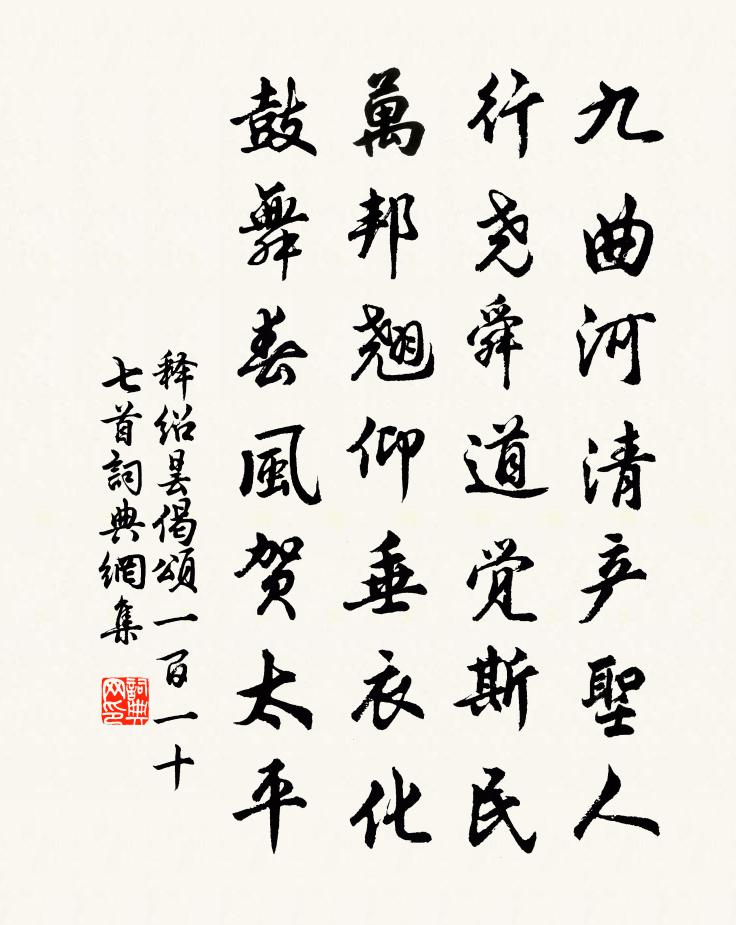 九曲河清产聖人
行尧舜道觉斯民
萬邦翘仰垂衣化
鼓舞春風贺太平
释绍昙偈頌一百一十
七首詞典網集
詞典网印